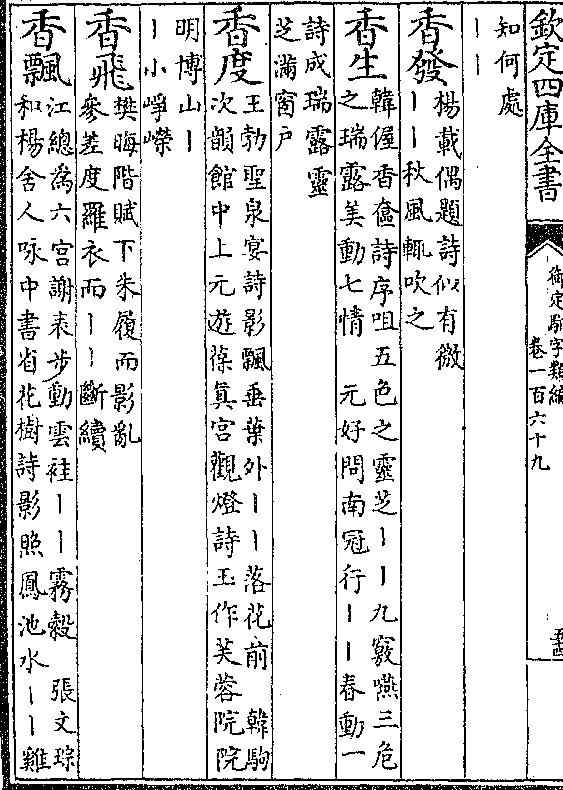 欽定四庫全書
御定駢字類編
卷一百六十九
知何處
丨丨
香發
楊載偶題詩似有微
丨丨秋風輒吹之
香生
韓偓香奩詩序咀五色之靈芝丨丨九竅嚥三危
之瑞露美動七情　元好問南冠行丨丨春動一
詩成瑞露靈
芝滿窗户
香度
王勃聖泉宴詩影飄垂葉外丨丨落花前　韓駒
次韻館中上元遊葆真宮觀燈詩玉作芙蓉院院
明博山丨
丨小崢嶸
香飛
樊晦階賦下朱履而影亂
參差度羅衣而丨丨斷續
香飄
江總為六宮謝表步動雲袿丨丨霧縠　張文琮
和楊舍人咏中書省花樹詩影照鳳池水丨丨雞